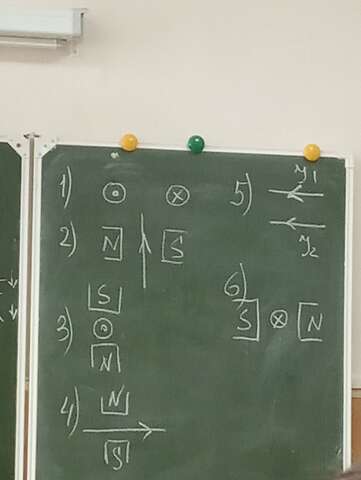 1) ⊙ ⊗
2) N S
3) S
⊙
N
4) N
S
5) y1
y2
6)
S ⊗ N